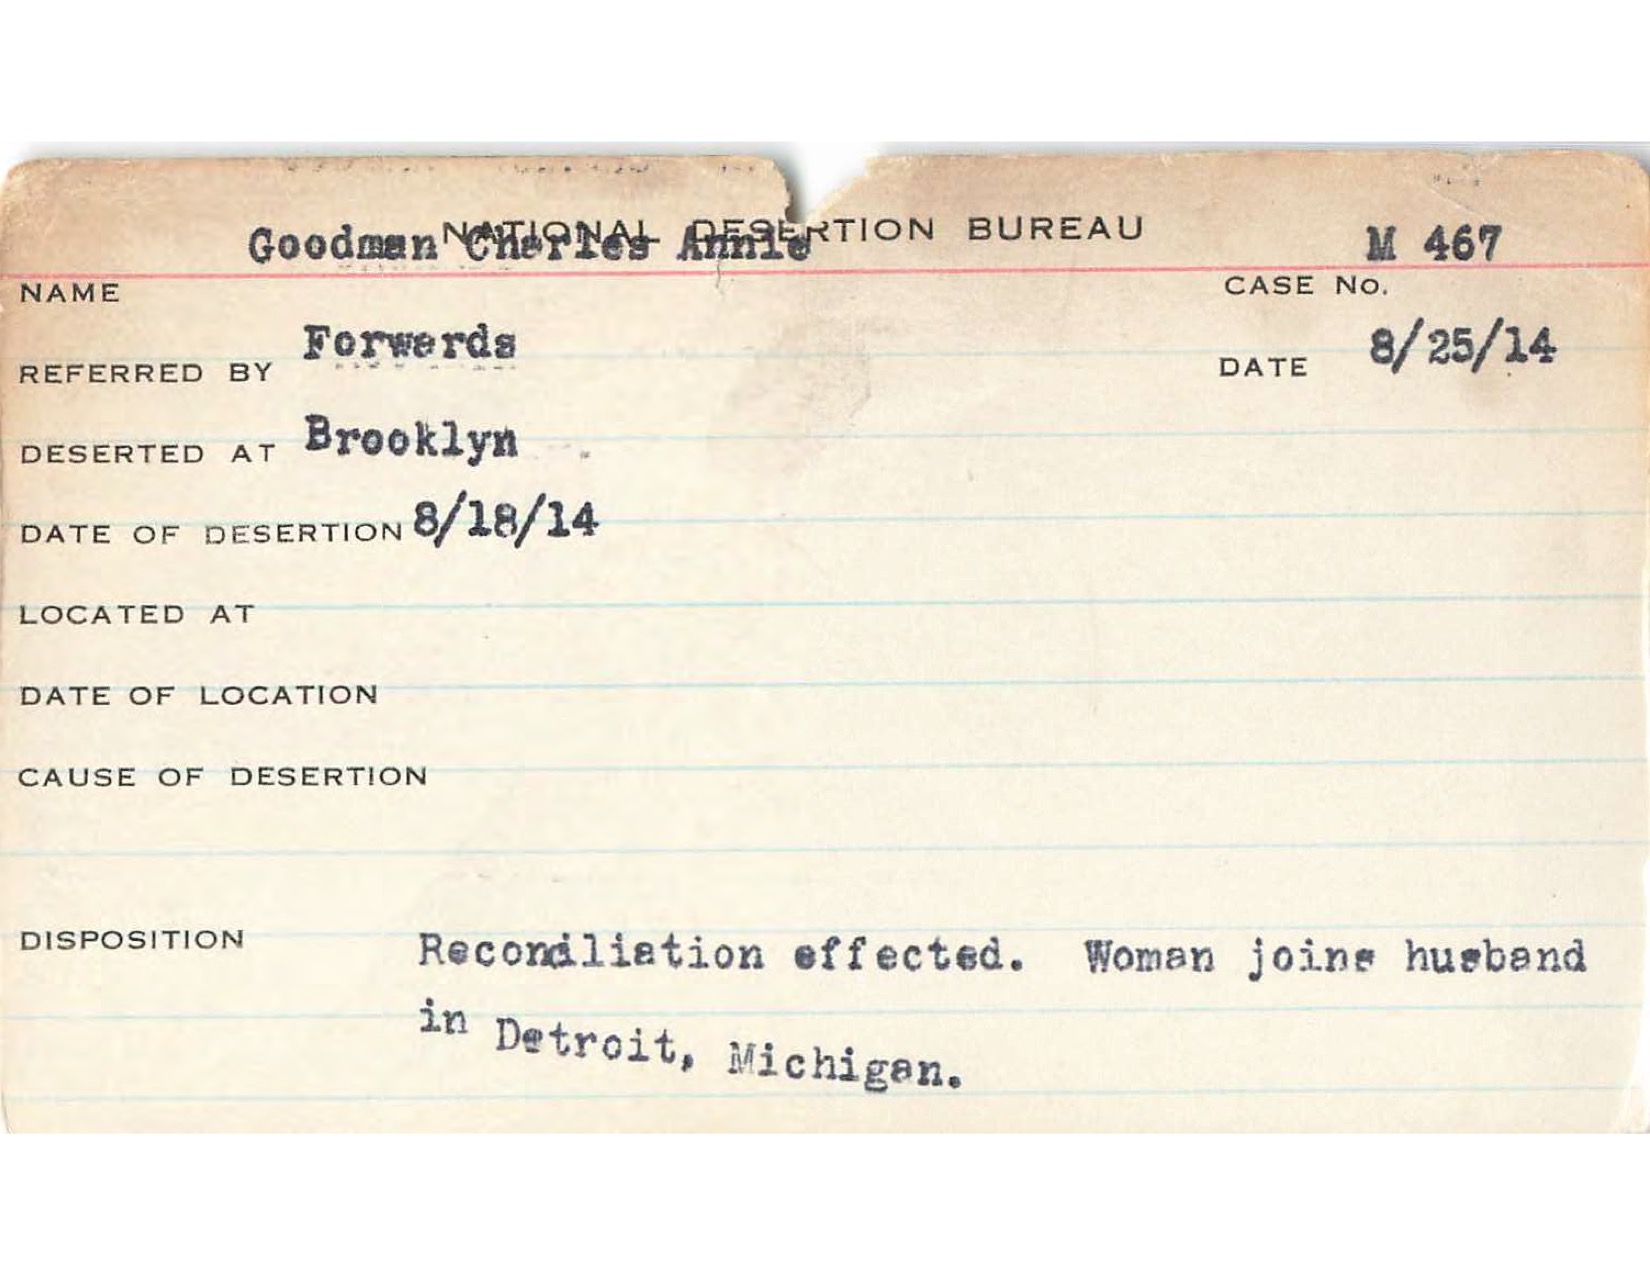 NATIONAL DESERTION BUREAU
Goodman Charles Annie M 467
NAME CASE No.
REFERRED BY Forwards DATE 8/25/14
DESERTED AT Brooklyn
DATE OF DESERTION 8/18/14
LOCATED AT
DATE OF LOCATION
CAUSE OF DESERTION
DISPOSITION Reconciliation effected. Woman joins husband
in Detroit, Michigan.